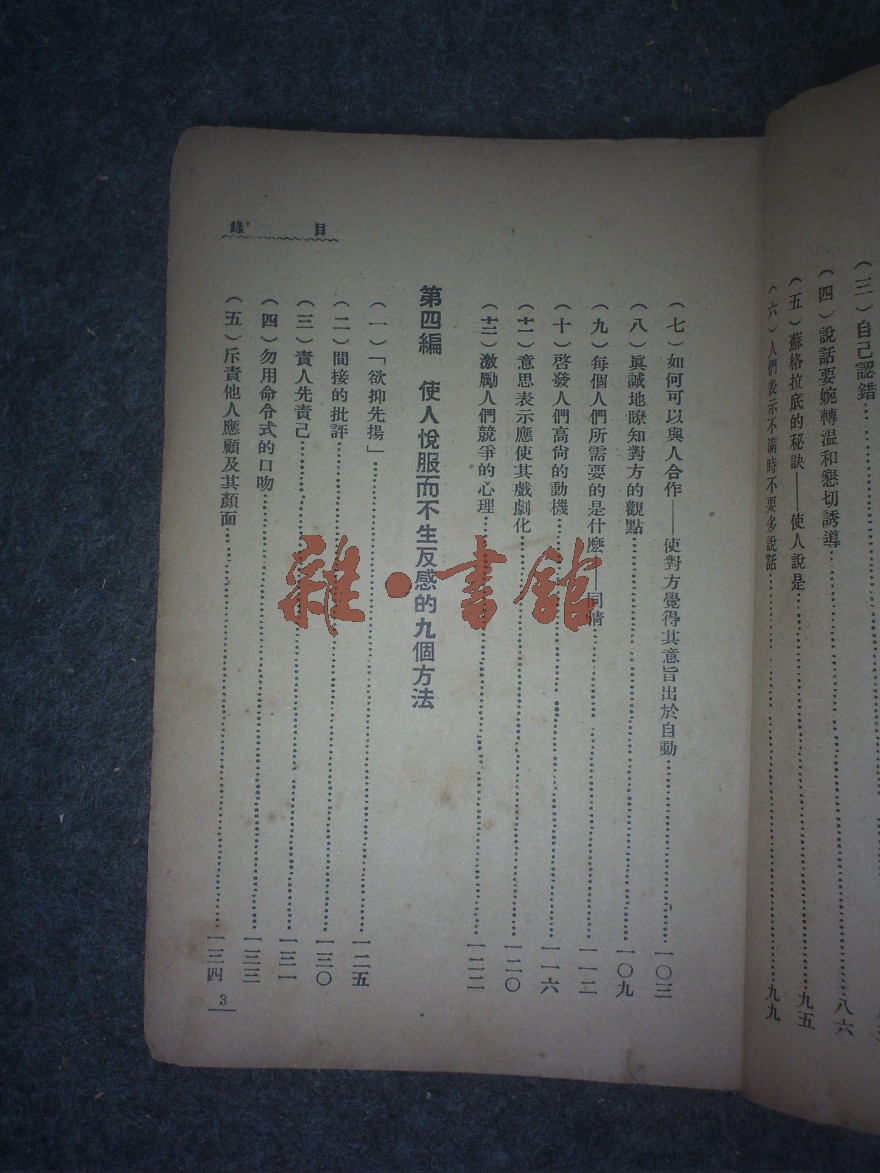 (三)自己認錯……
(四)說話要婉轉溫和懇切誘導……八六
(五)蘇格拉底的秘訣——使人說是……九五
(六)人們表示不滿時不要多說話……九九
目錄
(七)如何可以與人合作——使對方覺得其意旨出於自動……一〇三
(八)眞誠地瞭知對方的觀點……一〇九
(九)每個人們所需要的是什麽——同情……一一二
(十)啓發人們高尙的動機……一一六
(十一)意思表示應使其戲劇化……一二〇
(十二)激勵人們競爭的心理……一二二
第四編 使人悅服而不生反感的九個方法
(一)「欲抑先揚」……一二五
(二)間接的批評……一三〇
(三)責人先責己……一三一
(四)勿用命令式的口吻……一三三
(五)斥責他人應顧及其顏面……一三四
3
雜·書館